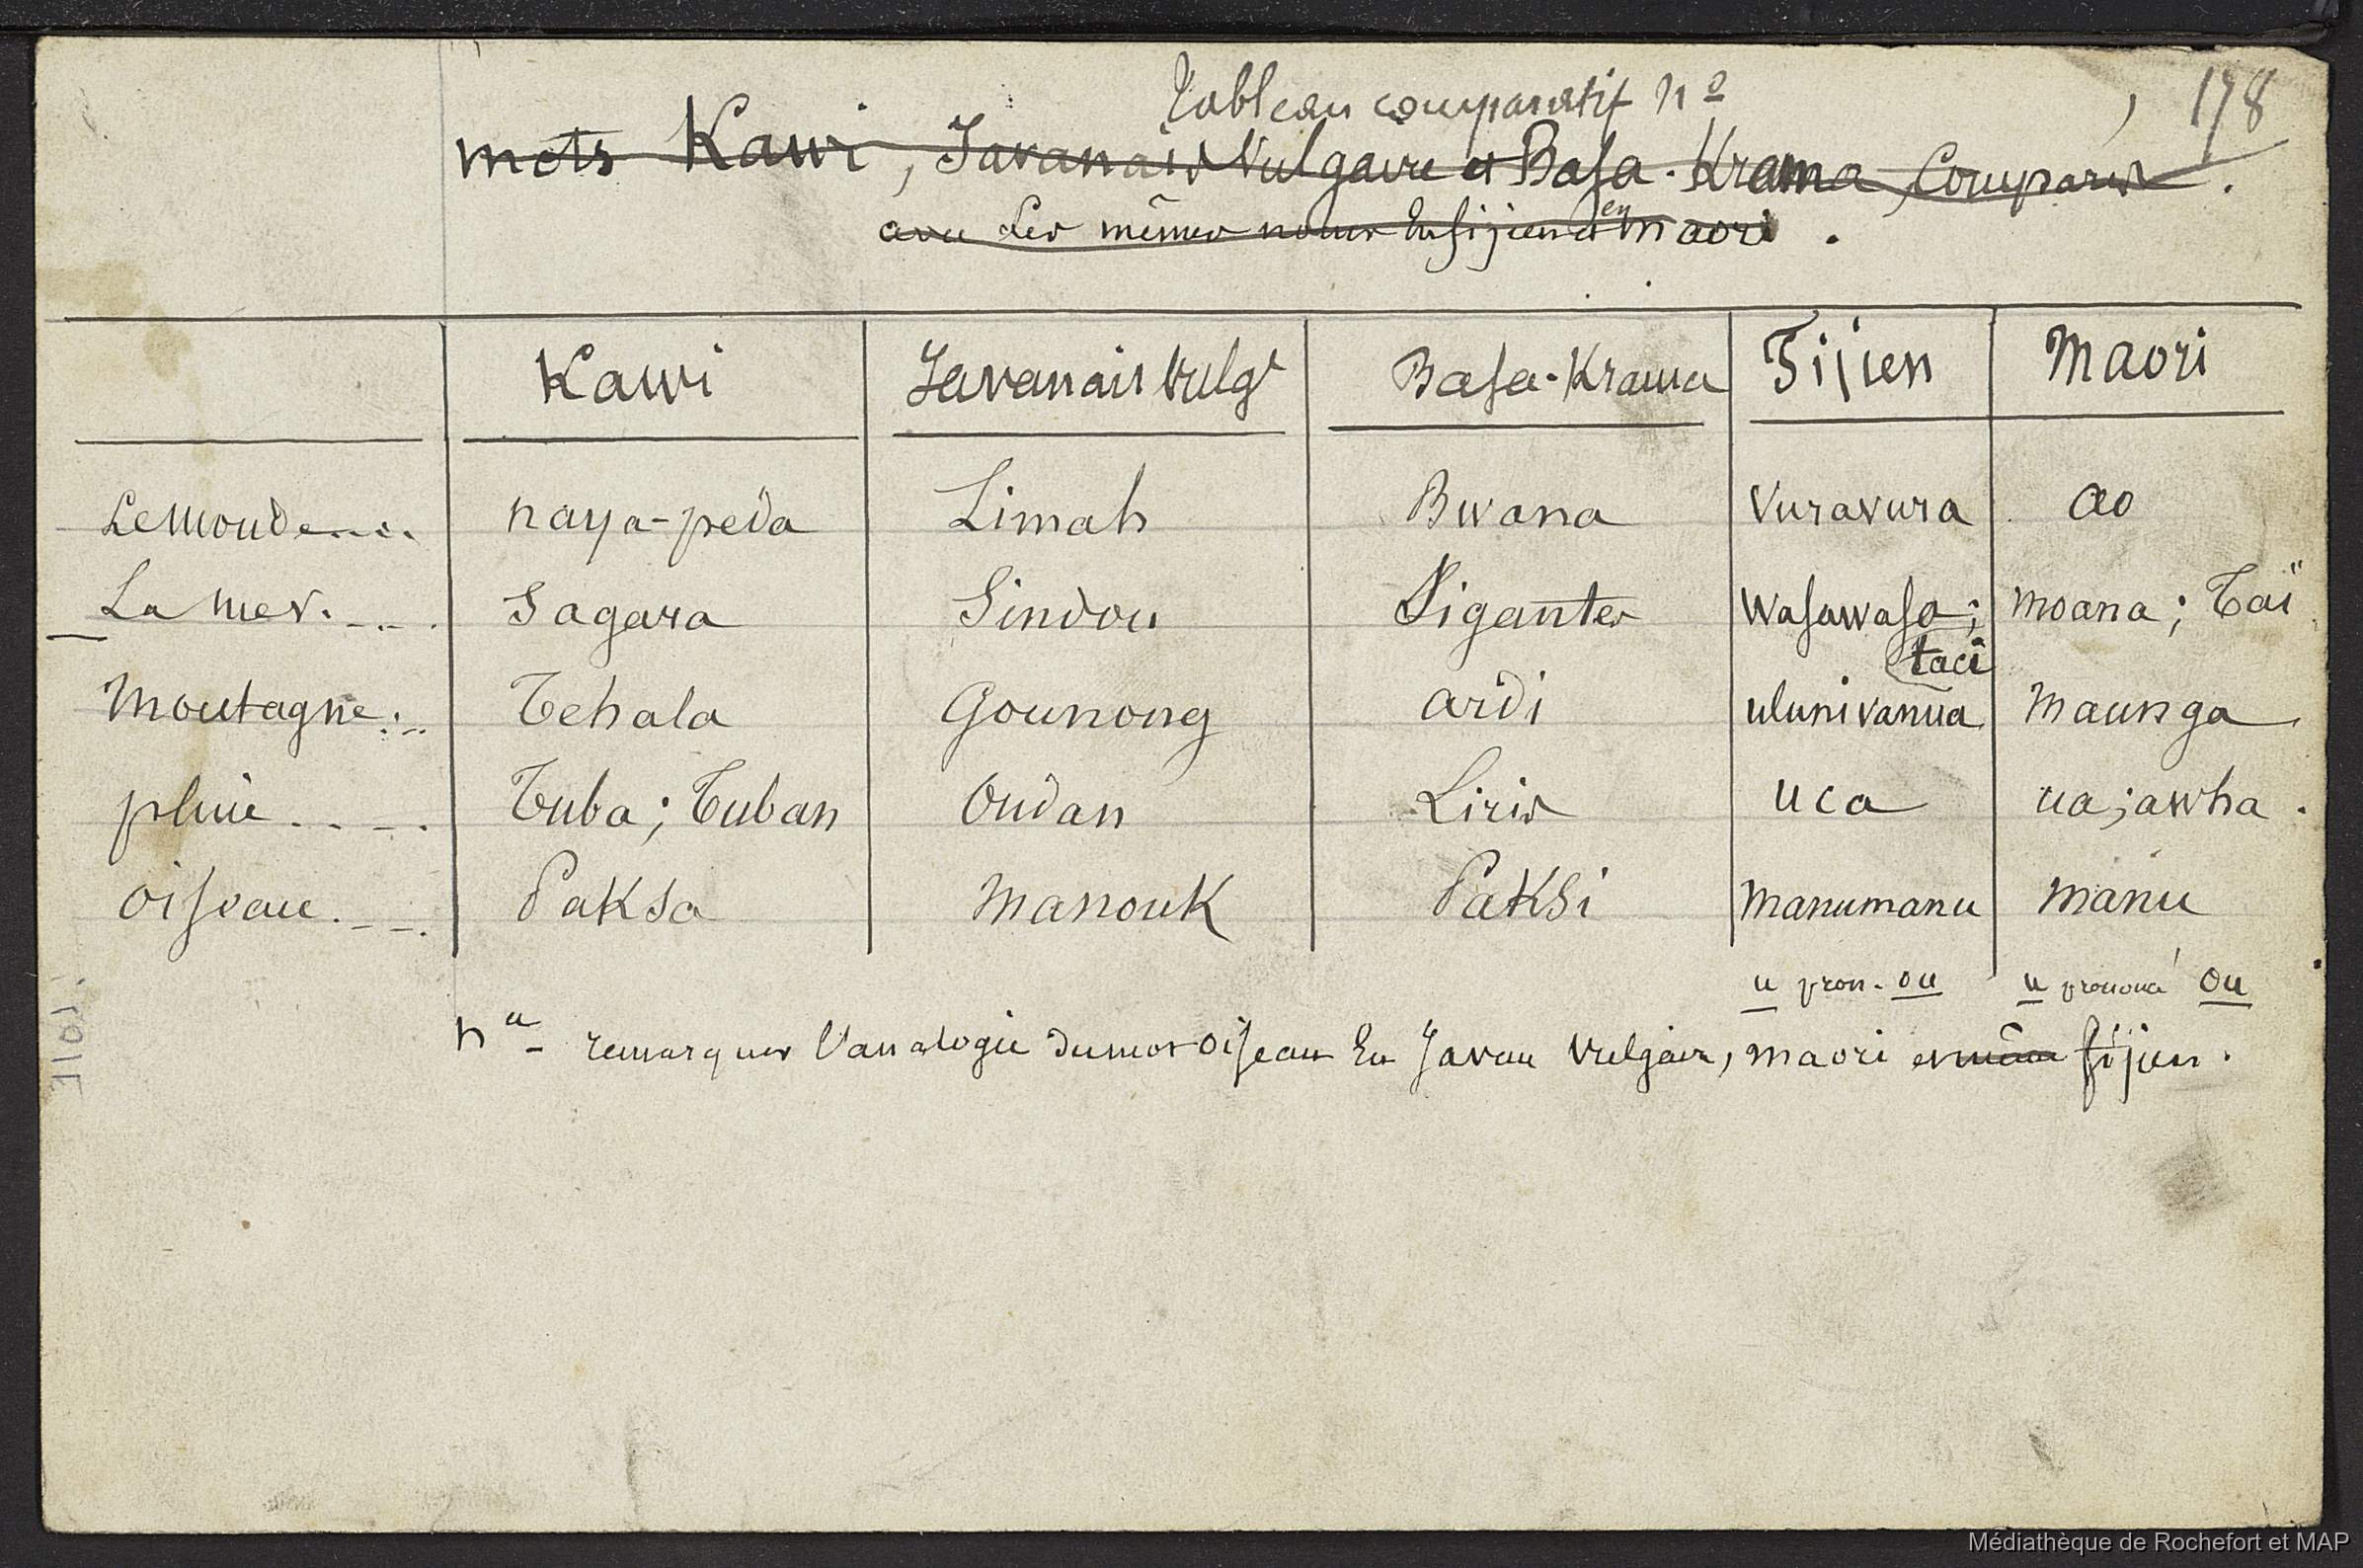 Tableau comparatif no
178
mots Kawi, Javanais Vulgaire et Basa-Krama, Comparés.
avec les mêmes noms en fijien et en maori.
Kawi Javanais Vulgre Basa-Krama Fijien Maori
Le monde.... naya-peda Limah Bwana Vuravura ao
La mer. Sagara Sindou Siganten Wasawasa; moana; Taï
taci
Montagne Tehala Gounong ardi ulunivanua Maunga
pluie.... Tuba; Tuban Oudan Liris uca ua; awha.
oiseau. Paksa Manouk Paksi Manumanu Manu
u pron. ou u prononcé ou
na - remarquer l'analogie du mot oiseau en Javan vulgaire, maori et même fijien.
Médiathèque de Rochefort et MAP